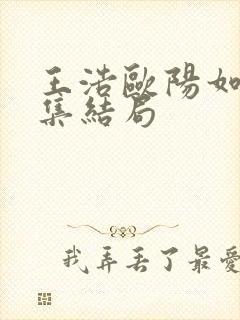 王浩歐陽如
集結局
我弄丟了最愛